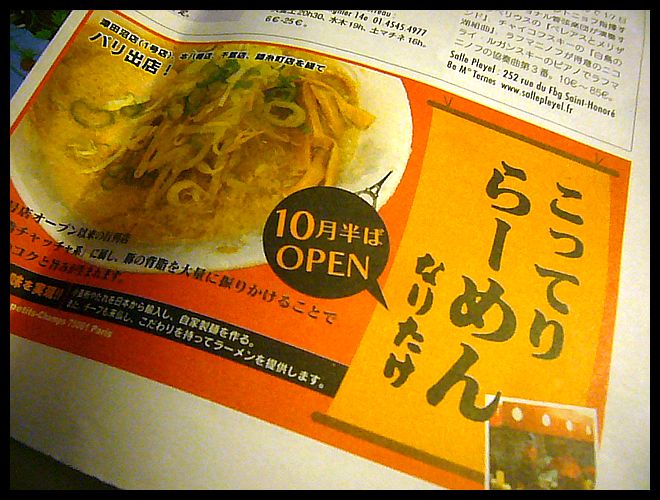 6€-25€.
gnier 14e 01 4545 4977
20h30, 水木 19h, 土マチネ 16h.
Salle Pleyel : 252 rue du Fbg Saint-Honoré
8e Mº Ternes www.sallepleyel.fr
津田沼店(1号店)、本八幡店、千葉店、錦糸町店を経て
パリ出店!
10月半ば
OPEN
こってり
らーめん
なりたけ
店オープン以来の行列店
チャッチャ系」に属し、豚の背脂を大量に振りかけることで
コクと旨みが生まれます。
味を直輸!!
たれを日本から輸入し、自家製麺を作る。
チーフも来仏し、こだわりを持ってラーメンを提供します。
Petits-Champs 75001 Paris